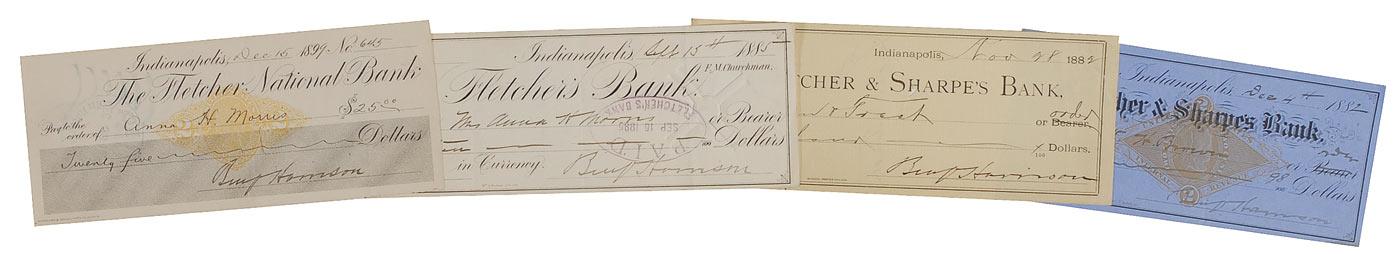 Indianapolis, Dec 15 1899 No. 645
The Fletcher National Bank
Pay to the order of Anna H Morris $25.00
Twenty five Dollars
Benj Harrison
Indianapolis, Sept 15th 1885
F. M. Churchman,
Fletcher's Bank:
Mrs Anna H Morris or Bearer
100 Dollars
in Currency.
Benj Harrison
FLETCHER'S BANK
SEP 16 1885
PAID
Indianapolis, Nov 28 1882
TCHER & SHARPE'S BANK,
Trust or Bearer. order
100 Dollars.
Benj Harrison
Indianapolis, Dec 4th 1882
her & Sharpe's Bank,
Brown or Bearer order
98 100 Dollars
INTERNAL REVENUE
2
Harrison